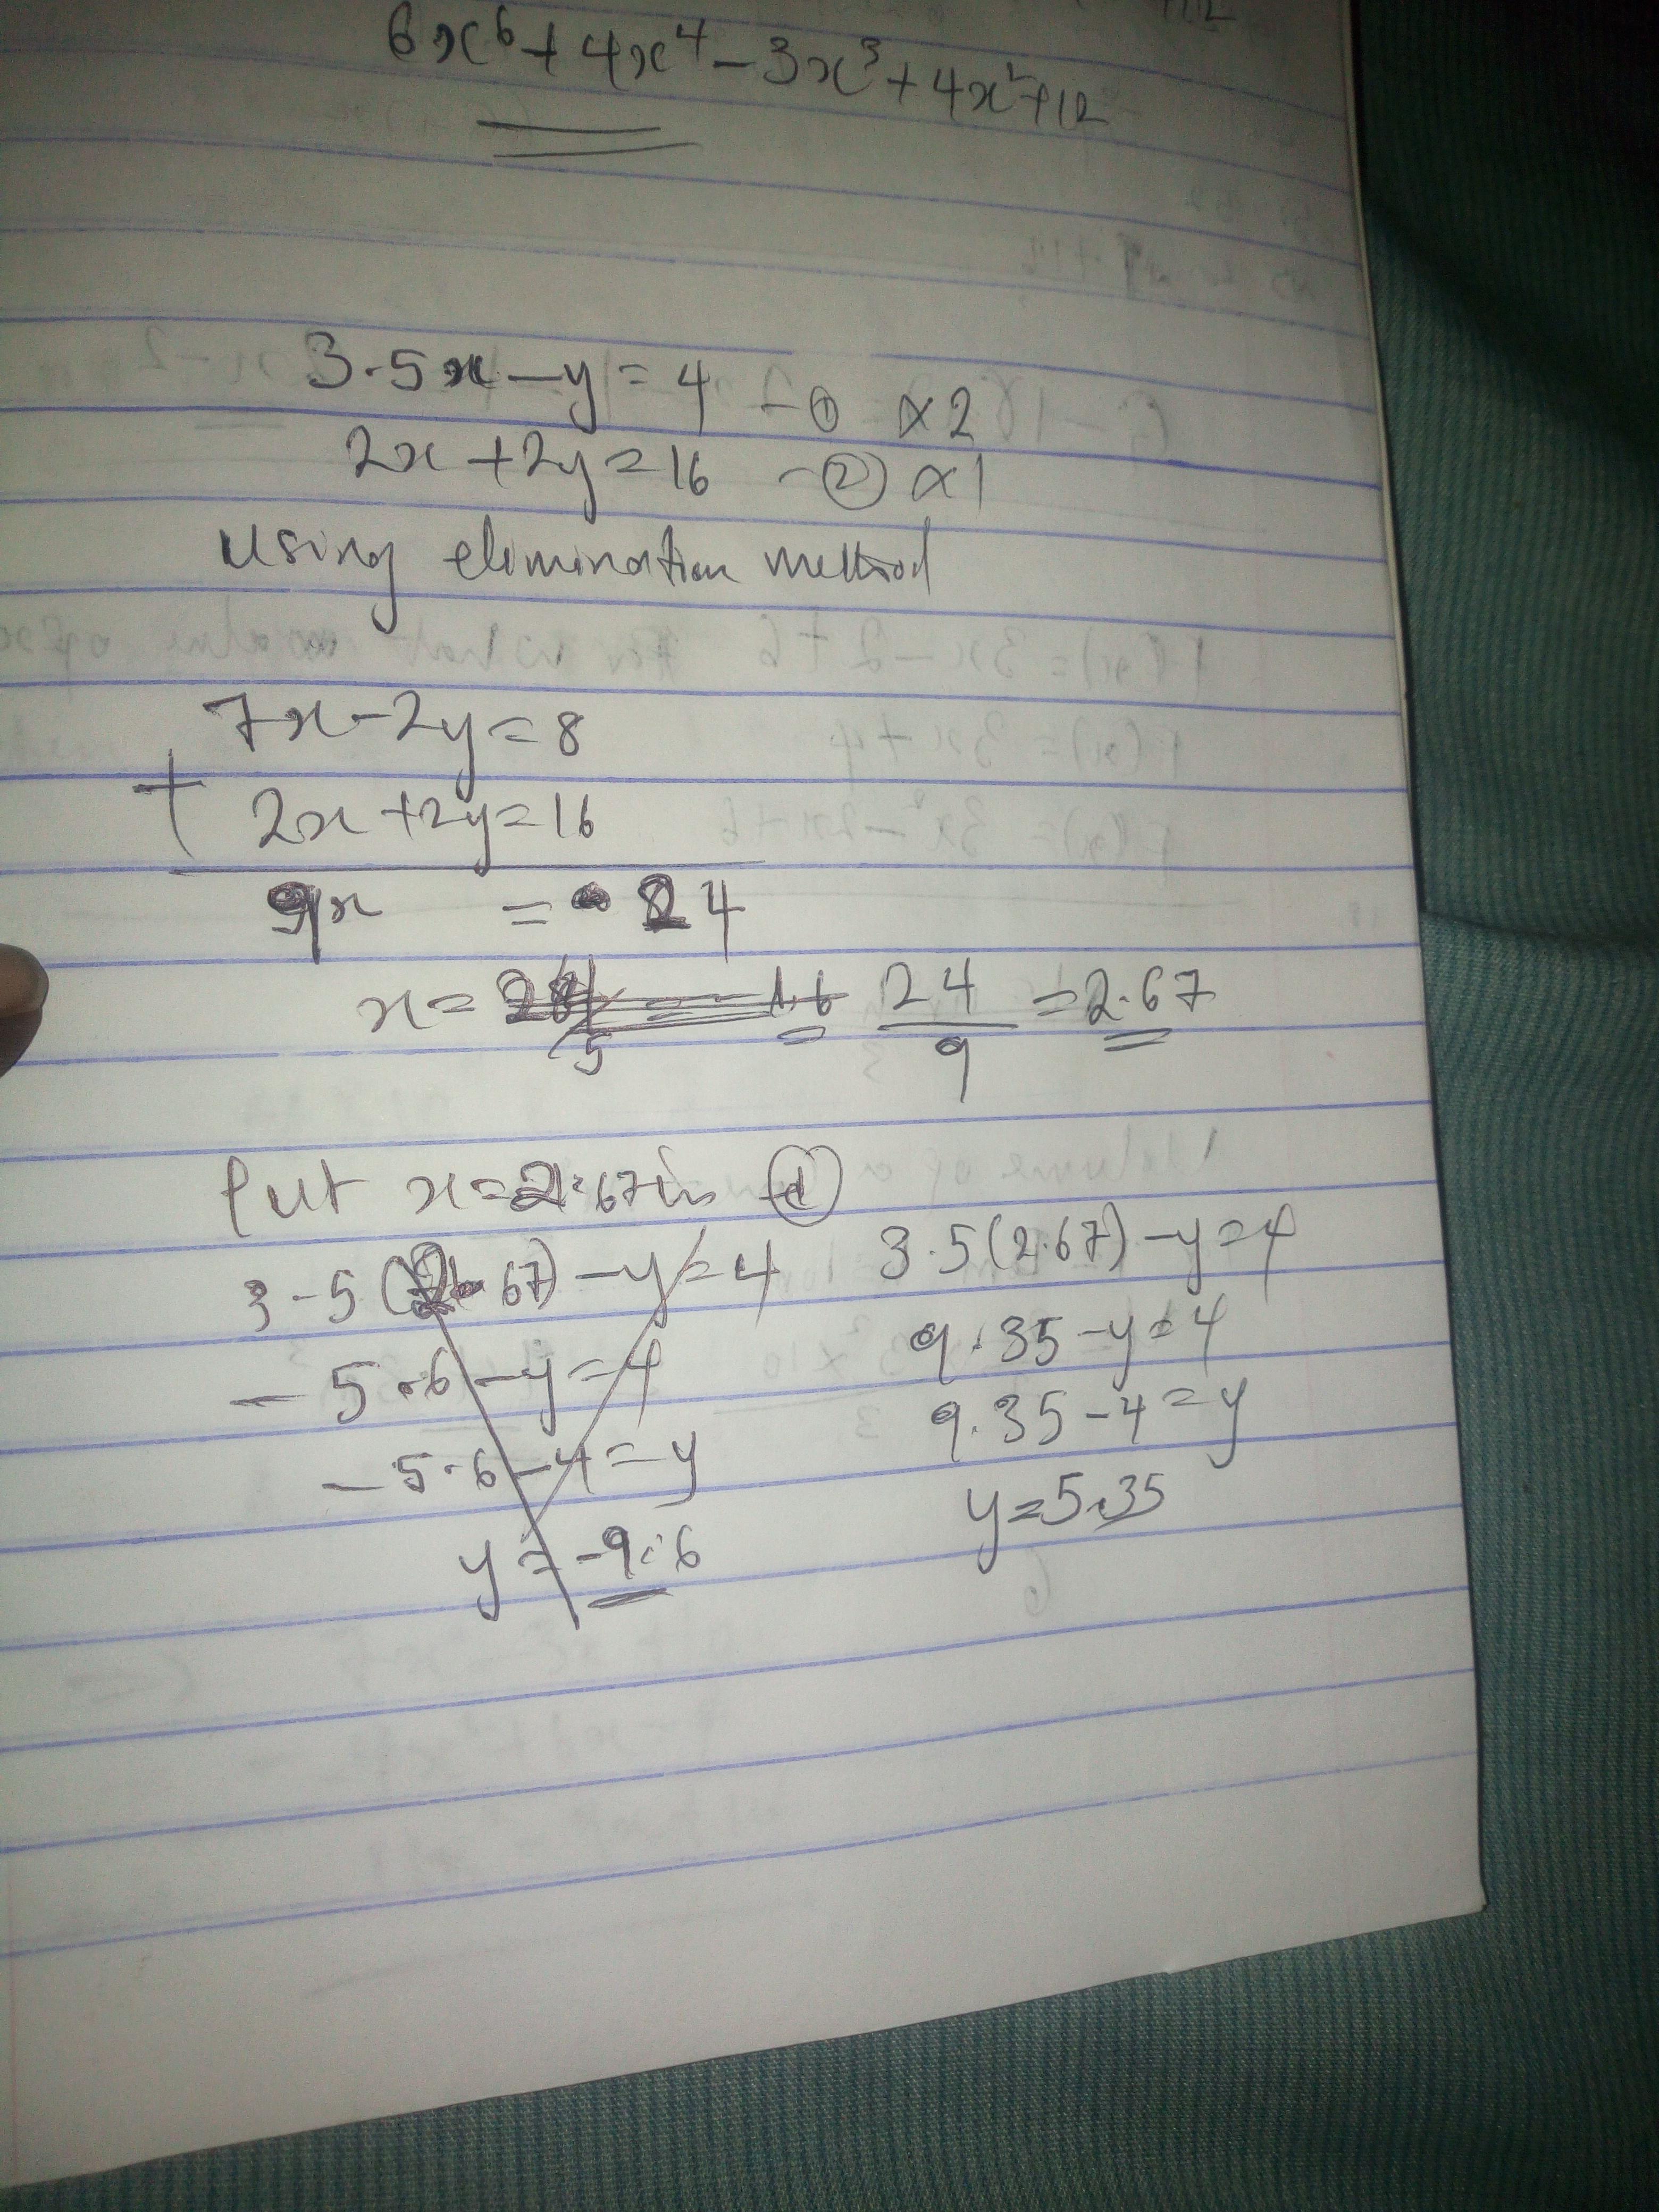 6x⁶+4x⁴-3x³+4x²+12
3.5x-y=4 -① ×2
2x+2y=16 -② ×1
Using elimination method
7x-2y=8
+ 2x+2y=16
9x = 24
x= 24/9 =2.67
Put x=2.67 in ①
3.5(2.67)-y=4
-5.6-y=4
-5.6-4=y
y=-9.6
3.5(2.67)-y=4
9.35-y=4
9.35-4=y
y=5.35